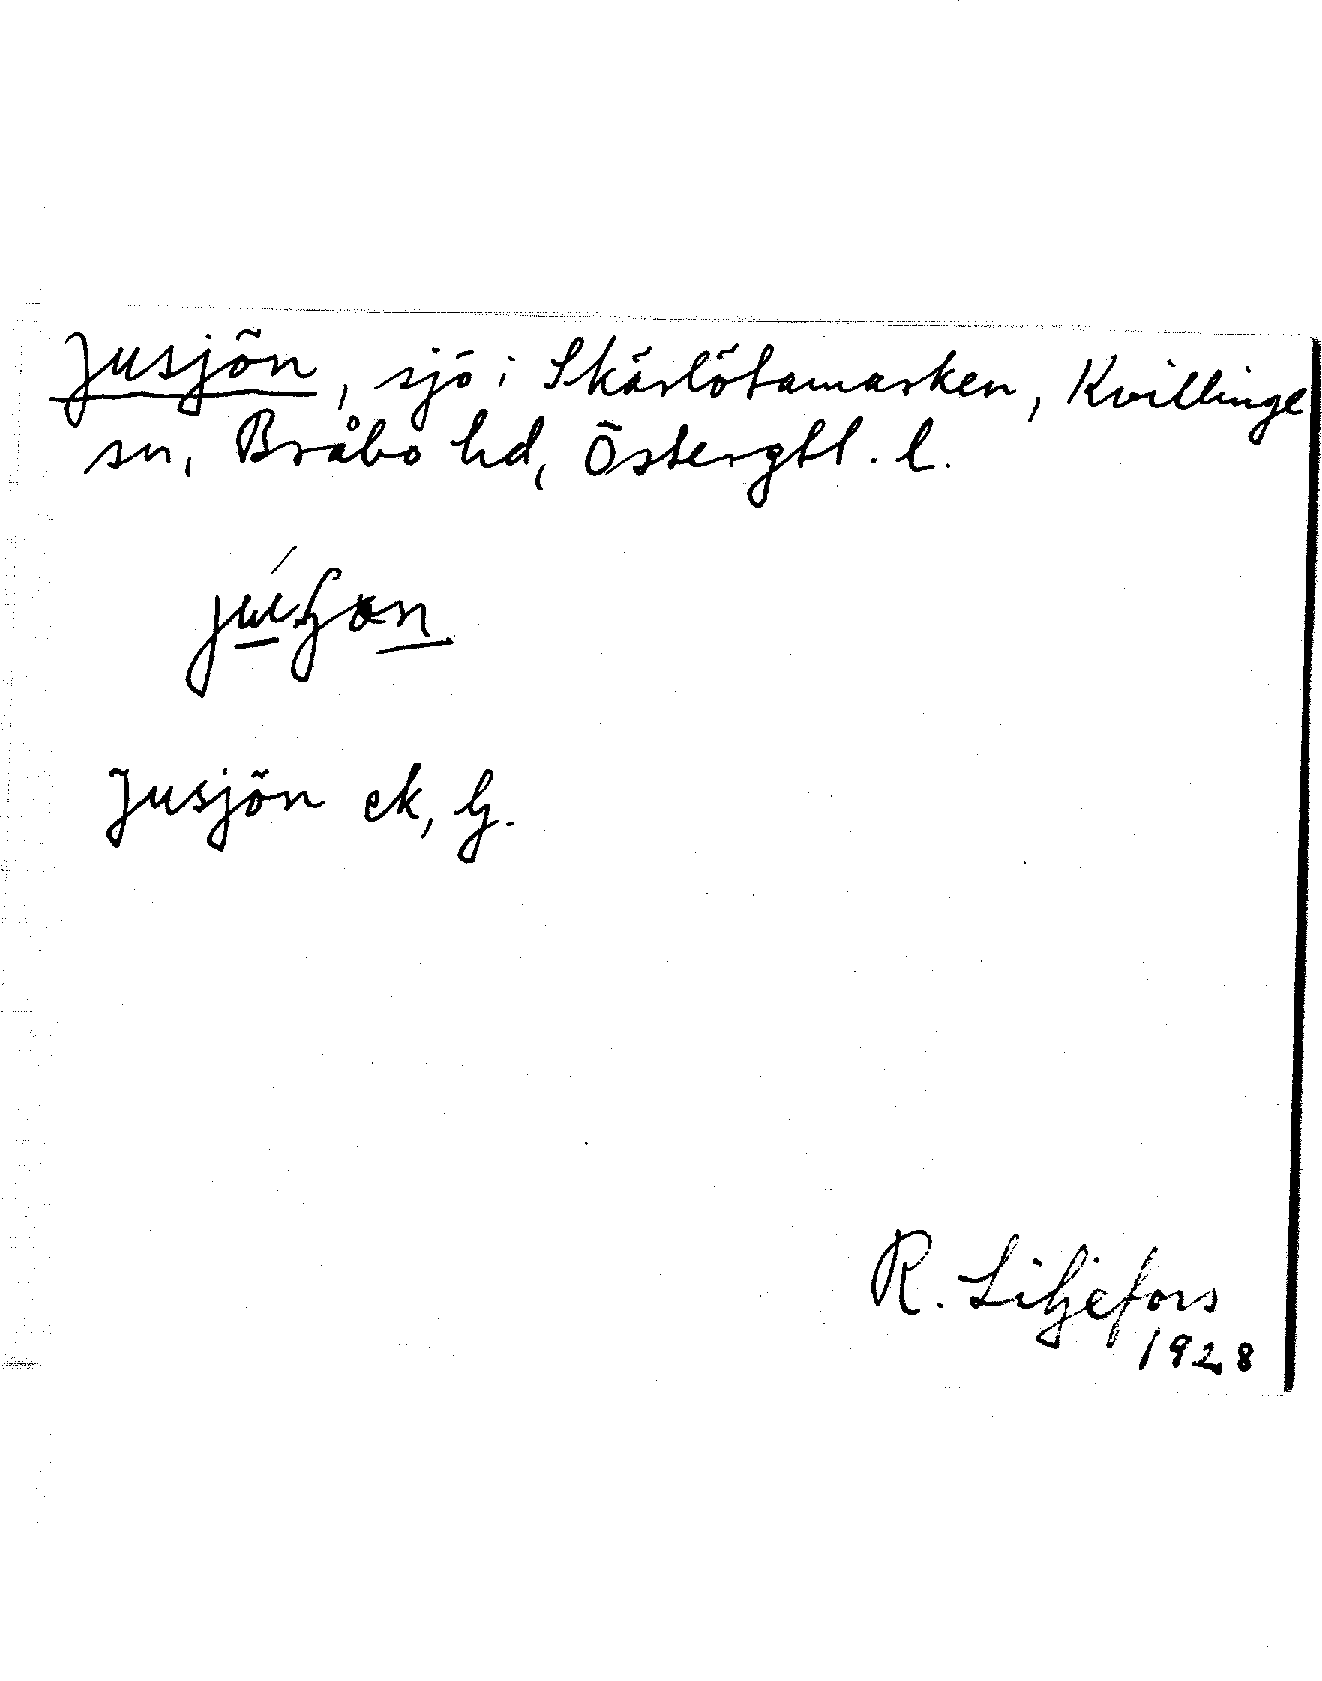 Jusjön, sjö i Skärlötamarken, Kvillinge
sn, Bråbo hd, Östergtl. l.
Jusjön ek, lj.
R. Liljefors
1928